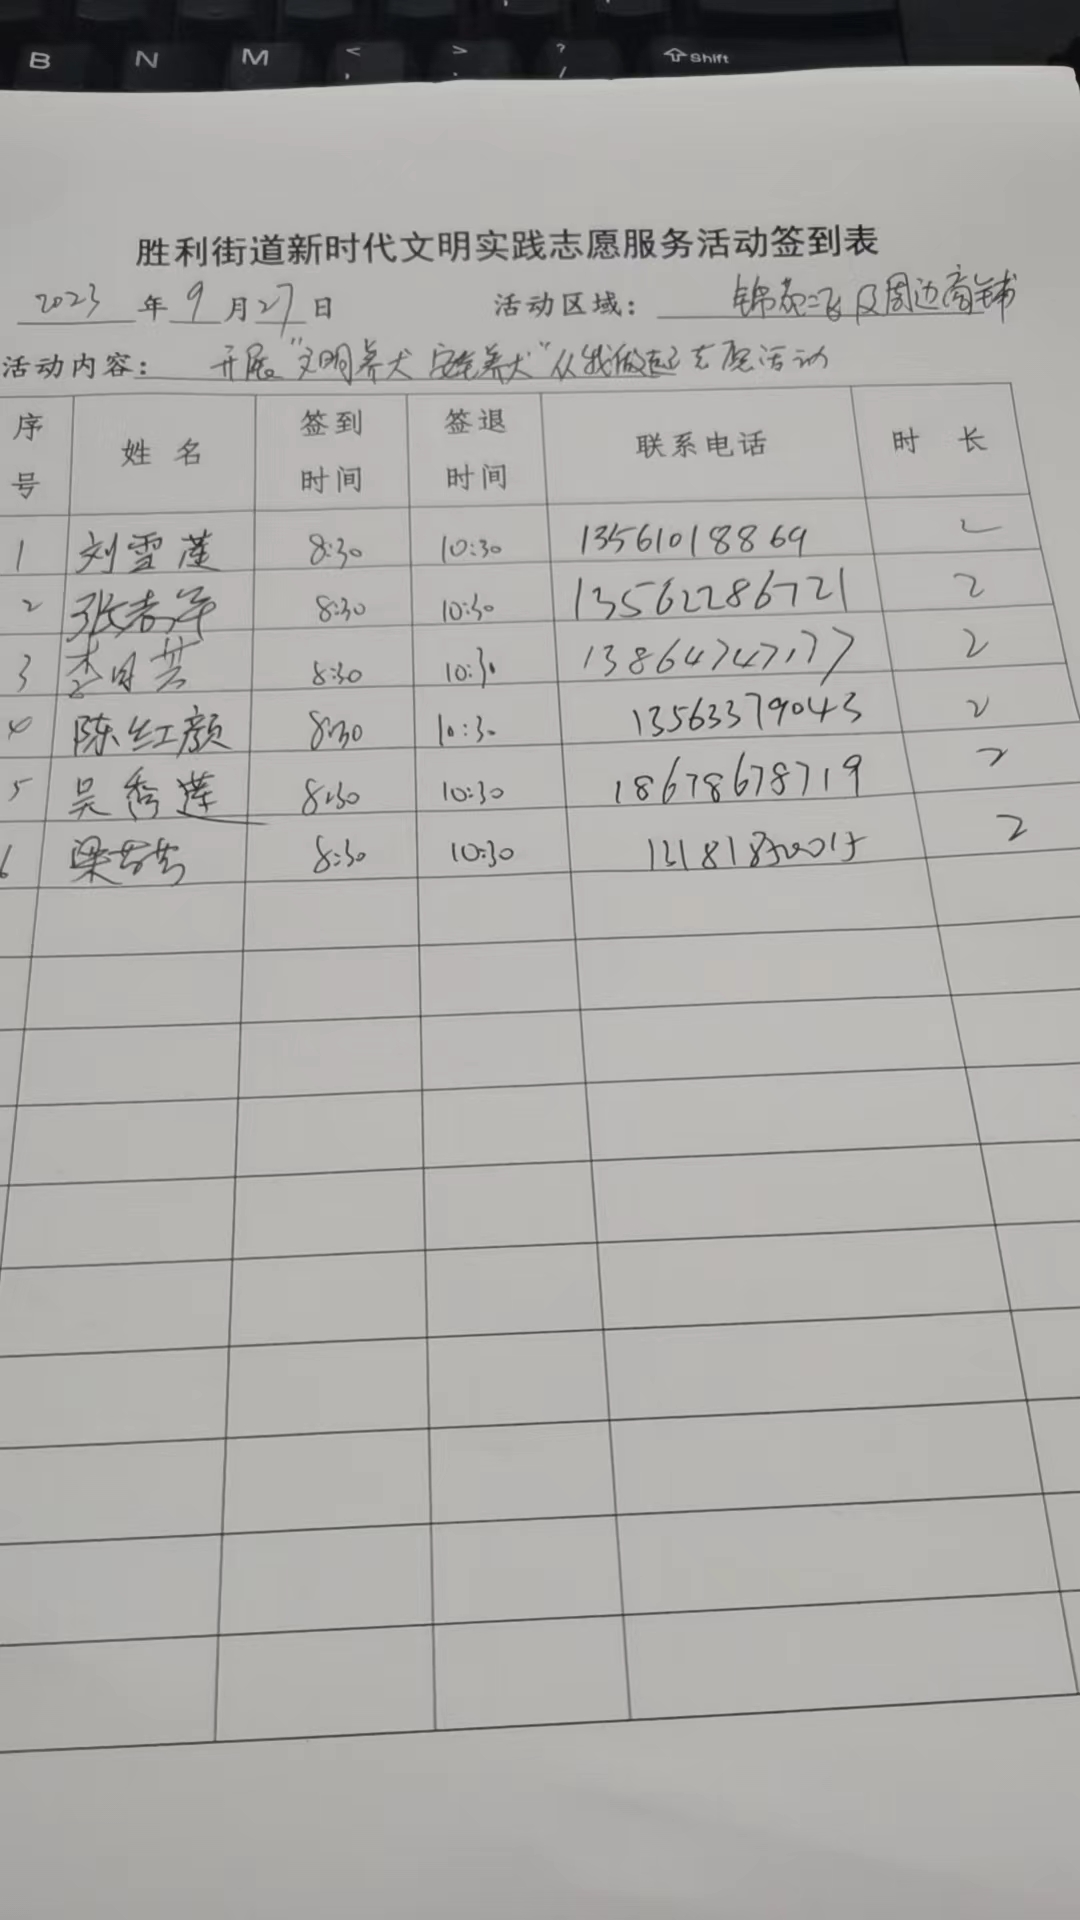 B N M < , > . ? / Shift
胜利街道新时代文明实践志愿服务活动签到表
2023 年 9 月 27 日 活动区域： 锦苑二 及周边商铺
活动内容： 开展“文明养犬 安全养犬”从我做起志愿活动
序号 姓名 签到时间 签退时间 联系电话 时长
1 刘雪莲 8:30 10:30 13561018869 2
2 张 军 8:30 10:30 13562286721 2
3 李月芸 8:30 10:30 13864747177 2
4 陈红颜 8:30 10:30 13563379043 2
5 吴秀莲 8:30 10:30 18678678719 2
6 梁芳芳 8:30 10:30 2